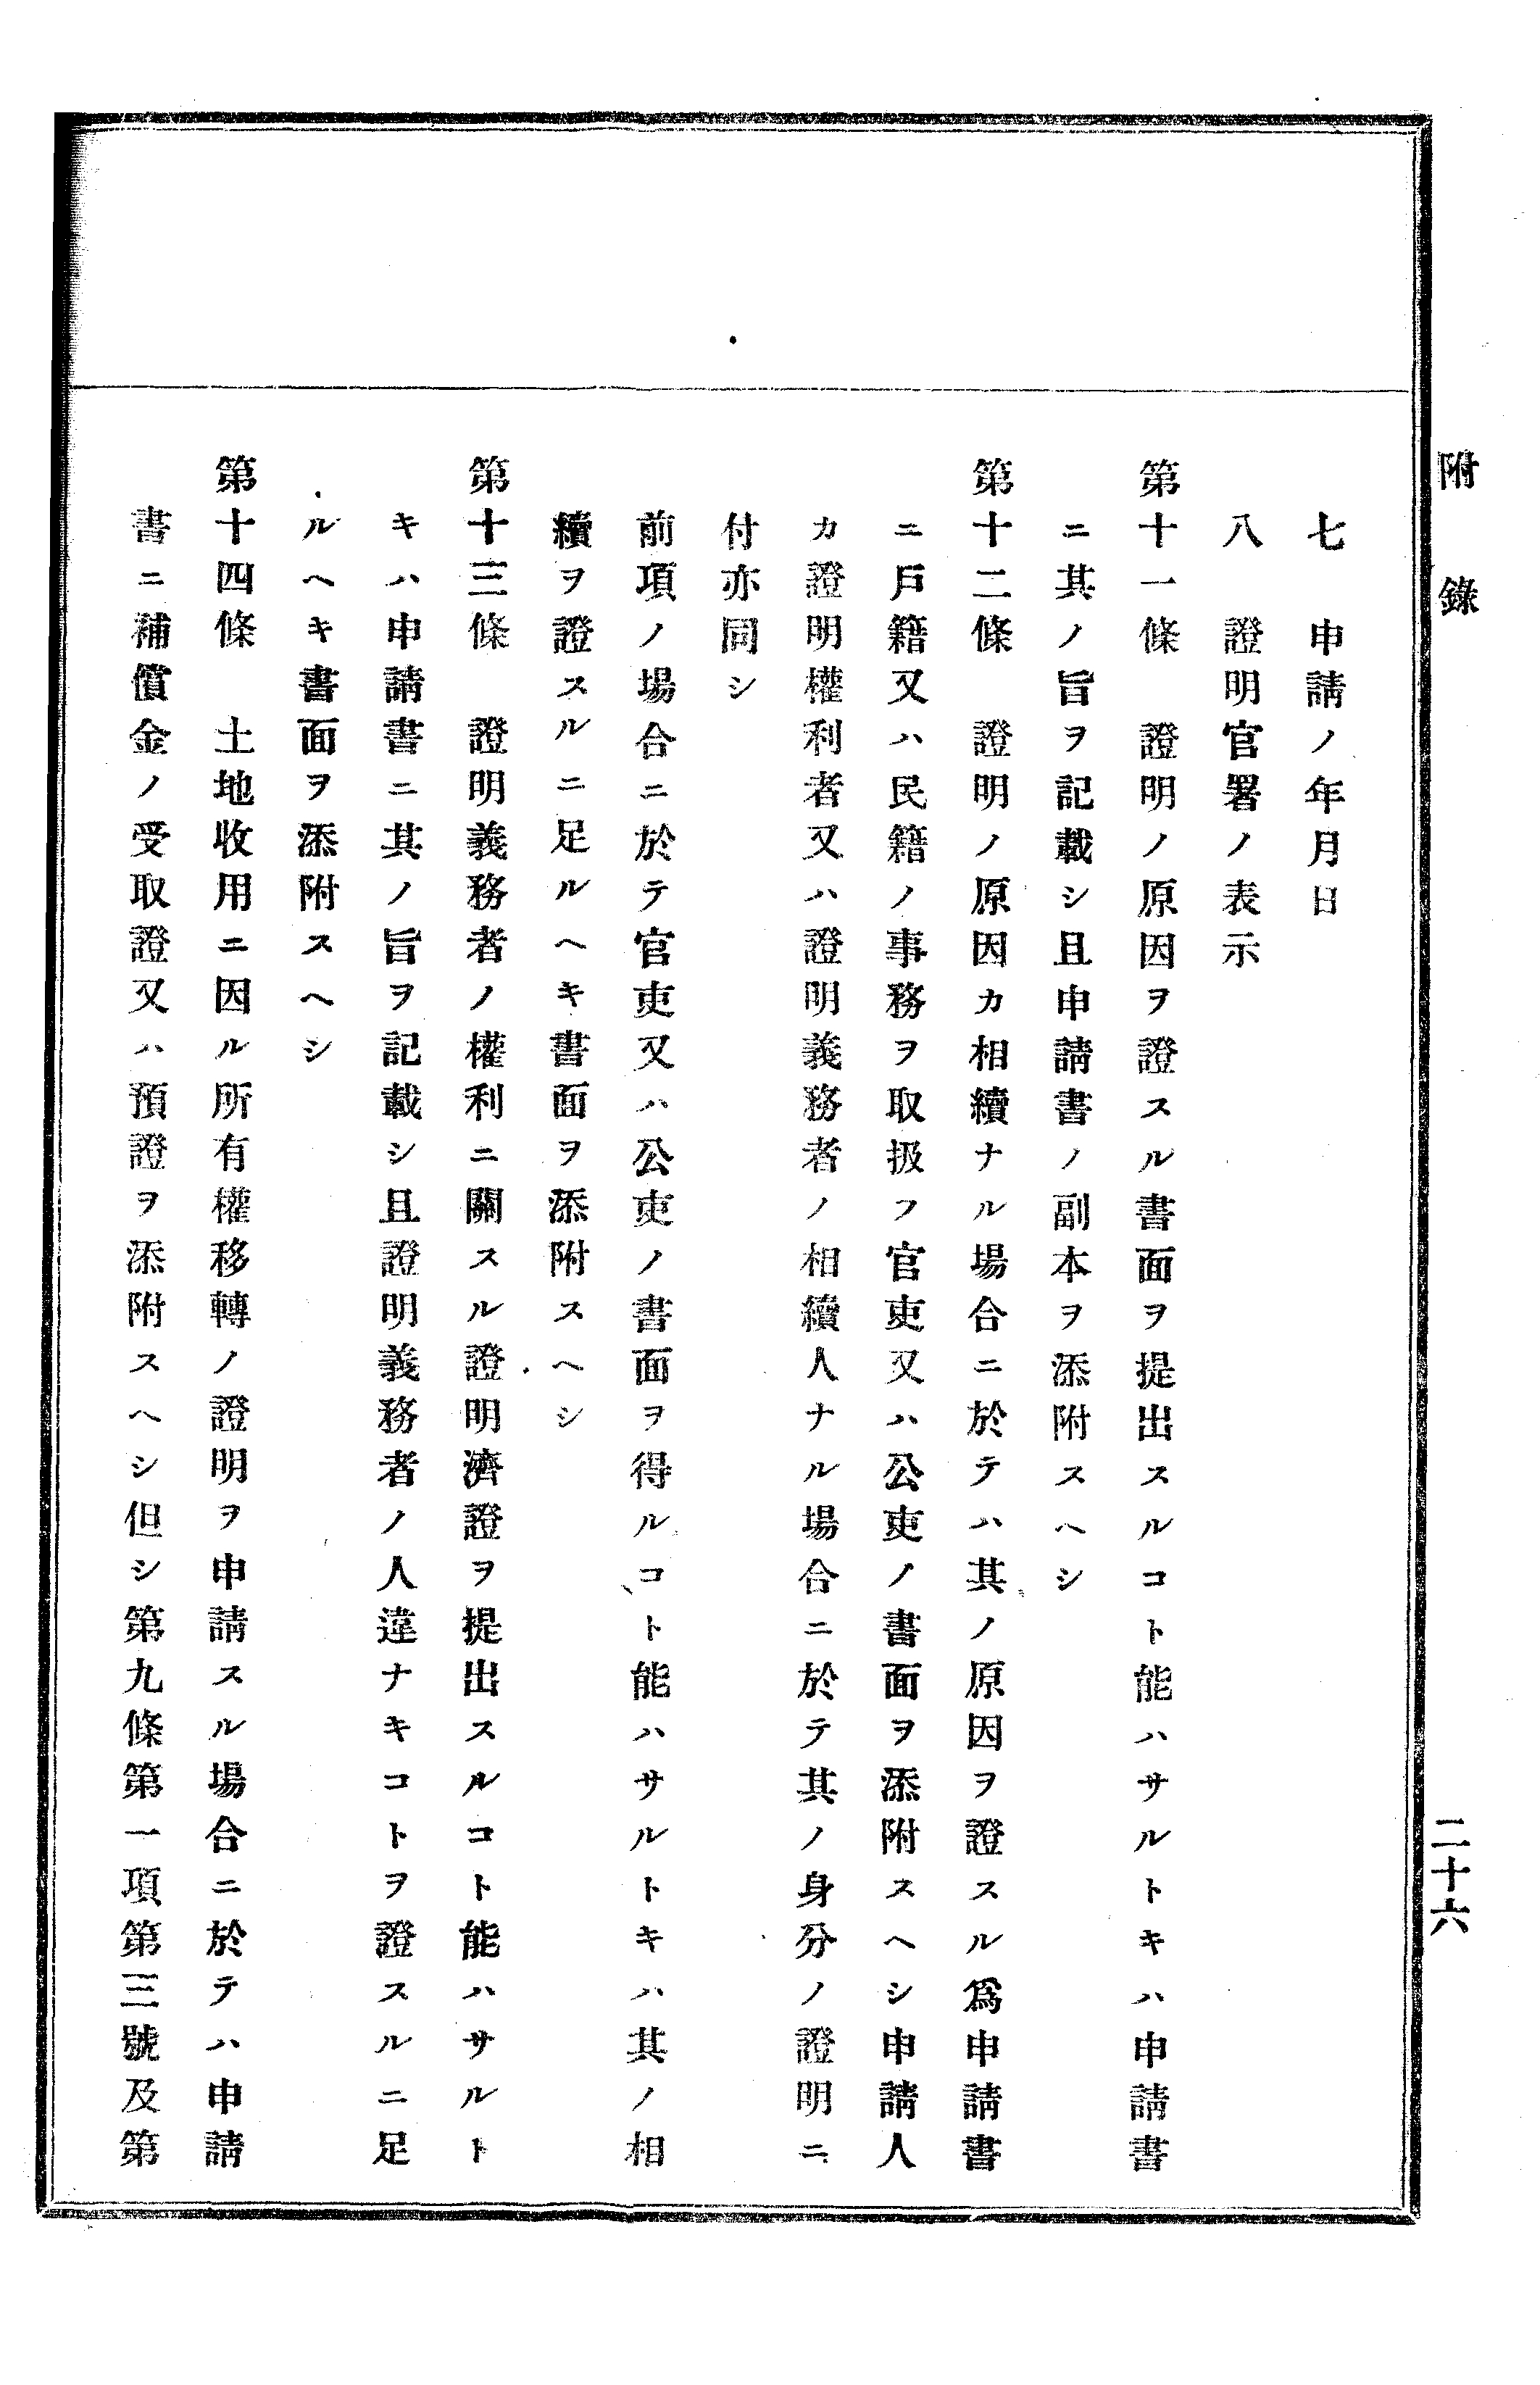 附錄
二十六
七　申請ノ年月日
八　證明官署ノ表示
第十一條　證明ノ原因ヲ證スル書面ヲ提出スルコト能ハサルトキハ申請書
ニ其ノ旨ヲ記載シ且申請書ノ副本ヲ添附スヘシ
第十二條　證明ノ原因カ相續ナル場合ニ於テハ其ノ原因ヲ證スル爲申請書
ニ戶籍又ハ民籍ノ事務ヲ取扱フ官吏又ハ公吏ノ書面ヲ添附スヘシ申請人
カ證明權利者又ハ證明義務者ノ相續人ナル場合ニ於テ其ノ身分ノ證明ニ
付亦同シ
前項ノ場合ニ於テ官吏又ハ公吏ノ書面ヲ得ルコト能ハサルトキハ其ノ相
續ヲ證スルニ足ルヘキ書面ヲ添附スヘシ
第十三條　證明義務者ノ權利ニ關スル證明濟證ヲ提出スルコト能ハサルト
キハ申請書ニ其ノ旨ヲ記載シ且證明義務者ノ人違ナキコトヲ證スルニ足
ルヘキ書面ヲ添附スヘシ
第十四條　土地收用ニ因ル所有權移轉ノ證明ヲ申請スル場合ニ於テハ申請
書ニ補償金ノ受取證又ハ預證ヲ添附スヘシ但シ第九條第一項第三號及第